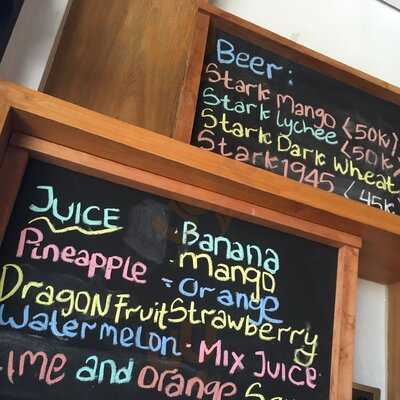 Beer:
Stark Mango (50k)
Stark Lychee (50k)
Stark Dark Wheat
Stark 1945 (45k
JUICE
Pineapple
DRAGON Fruit
Watermelon
Lime and orange
· Banana
· mango
- orange
Strawberry
· Mix Juice